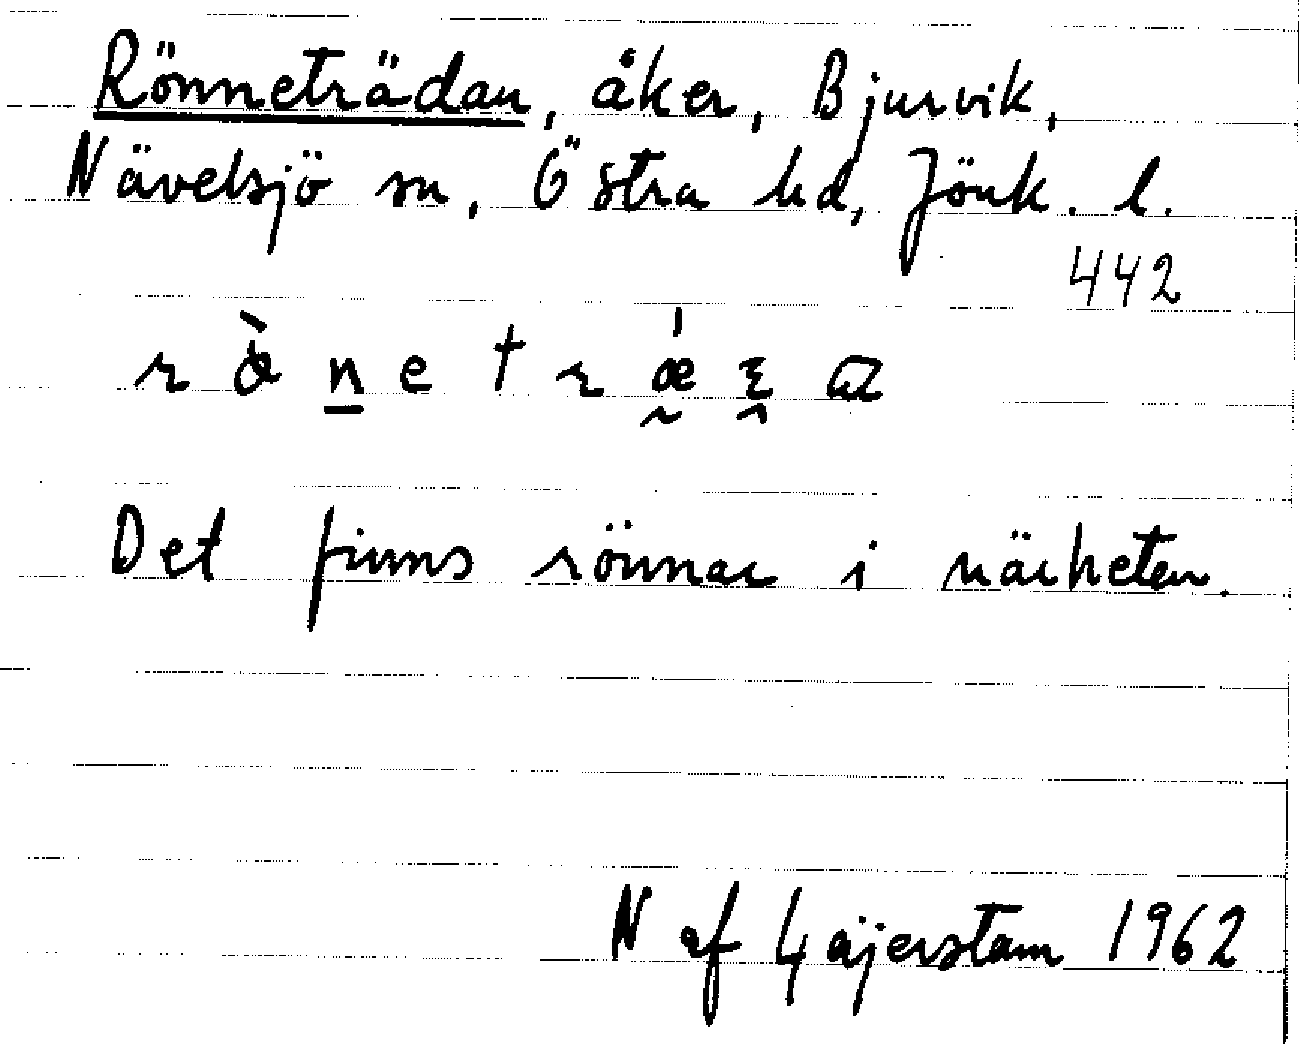 Rönneträdan, åker, Bjurvik,
Nävelsjö sn, Östra hd, Jönk. l.
442
Det finns rönnar i närheten.
N af Gäijerstam 1962